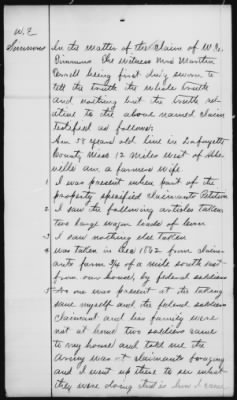 W. E.
In the matter of the Claim of W. E.
Simmons The witness Mrs Martin
being first duly sworn to
tell the truth the whole truth
and nothing but the truth re-
ative to the above named claim
testified as follows:
Am 58 years old live in Lafayette
County Miss 12 miles west of
ville am a farmers wife
1 I was present when part of the
property specified claimants Petition
2 I saw the following articles taken
two large wagon loads of corn
3 I saw nothing else taken
4 was taken in Dec 1862 from claim-
ants farm 3/4 of a mile south east
from our house, by federal soldiers
5 No one was present at the taking
save myself and the federal soldiers
claimant and his family were
not at home two soldiers came
to my house and told me the
Army was at claimants foraging
and I went up there to see what
they were doing that is how I came